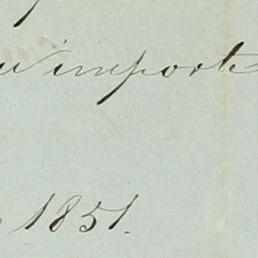 importe
1851.